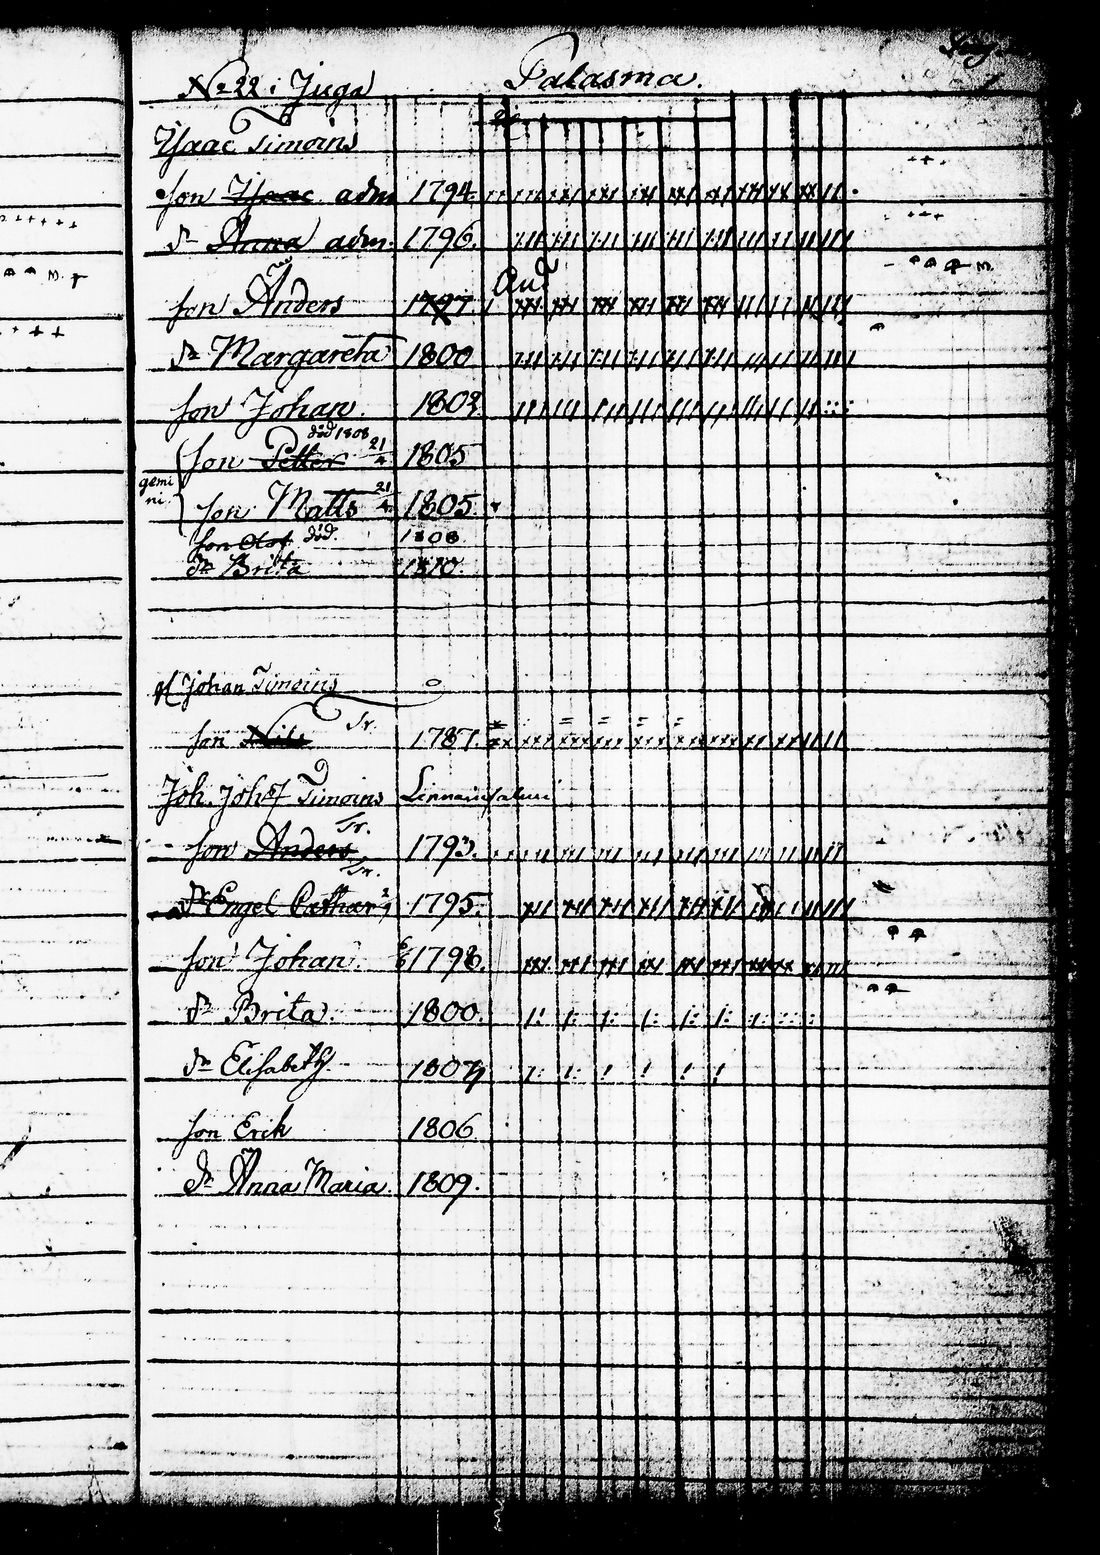 No 22 i Juga Palasma.
Isaac Timoins
Son Isaac adm 1794.
Dr Anna adm. 1796.
Son Anders 1797
Dr Margareta 1800
Son Johan. 1802.
död 1808
Son Petter 21/4 1805
gemi
ni.
Son Matts 21/4 1805.
Son Olof död. 1808
Dr Brita 1810
Johan Timoins
Son Nils Tr. 1787.
Joh. Johs Timoins
Son Anders Tr. 1793.
Tr.
Dr Engel Cathar 1795.
Son Johan. 1798.
Dr Brita. 1800.
Dr Elisabeth.
Son Erik 1806
Dr Anna Maria. 1809.